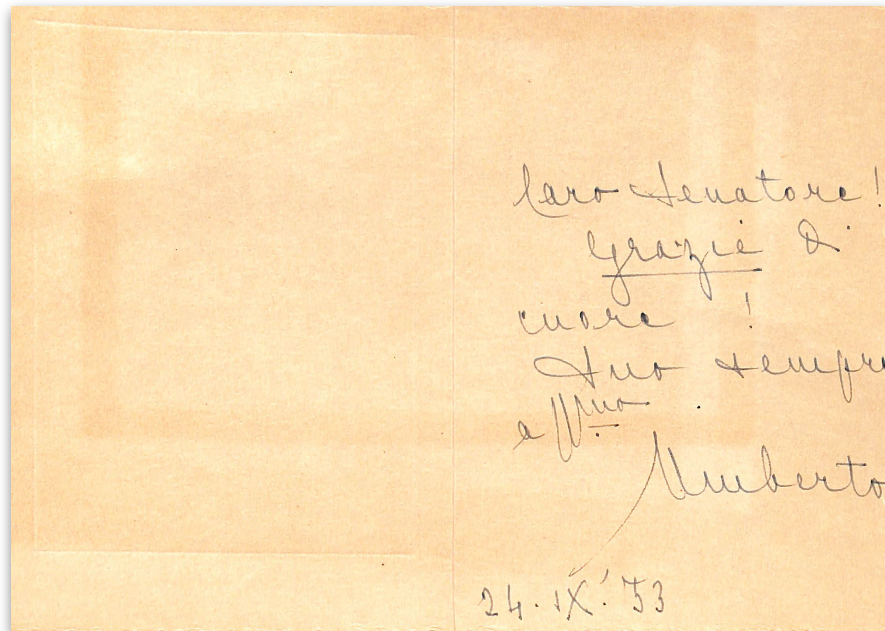 Caro Senatore!
Grazie di
cuore !
Suo sempre
aff.mo
Umberto
24.IX.53